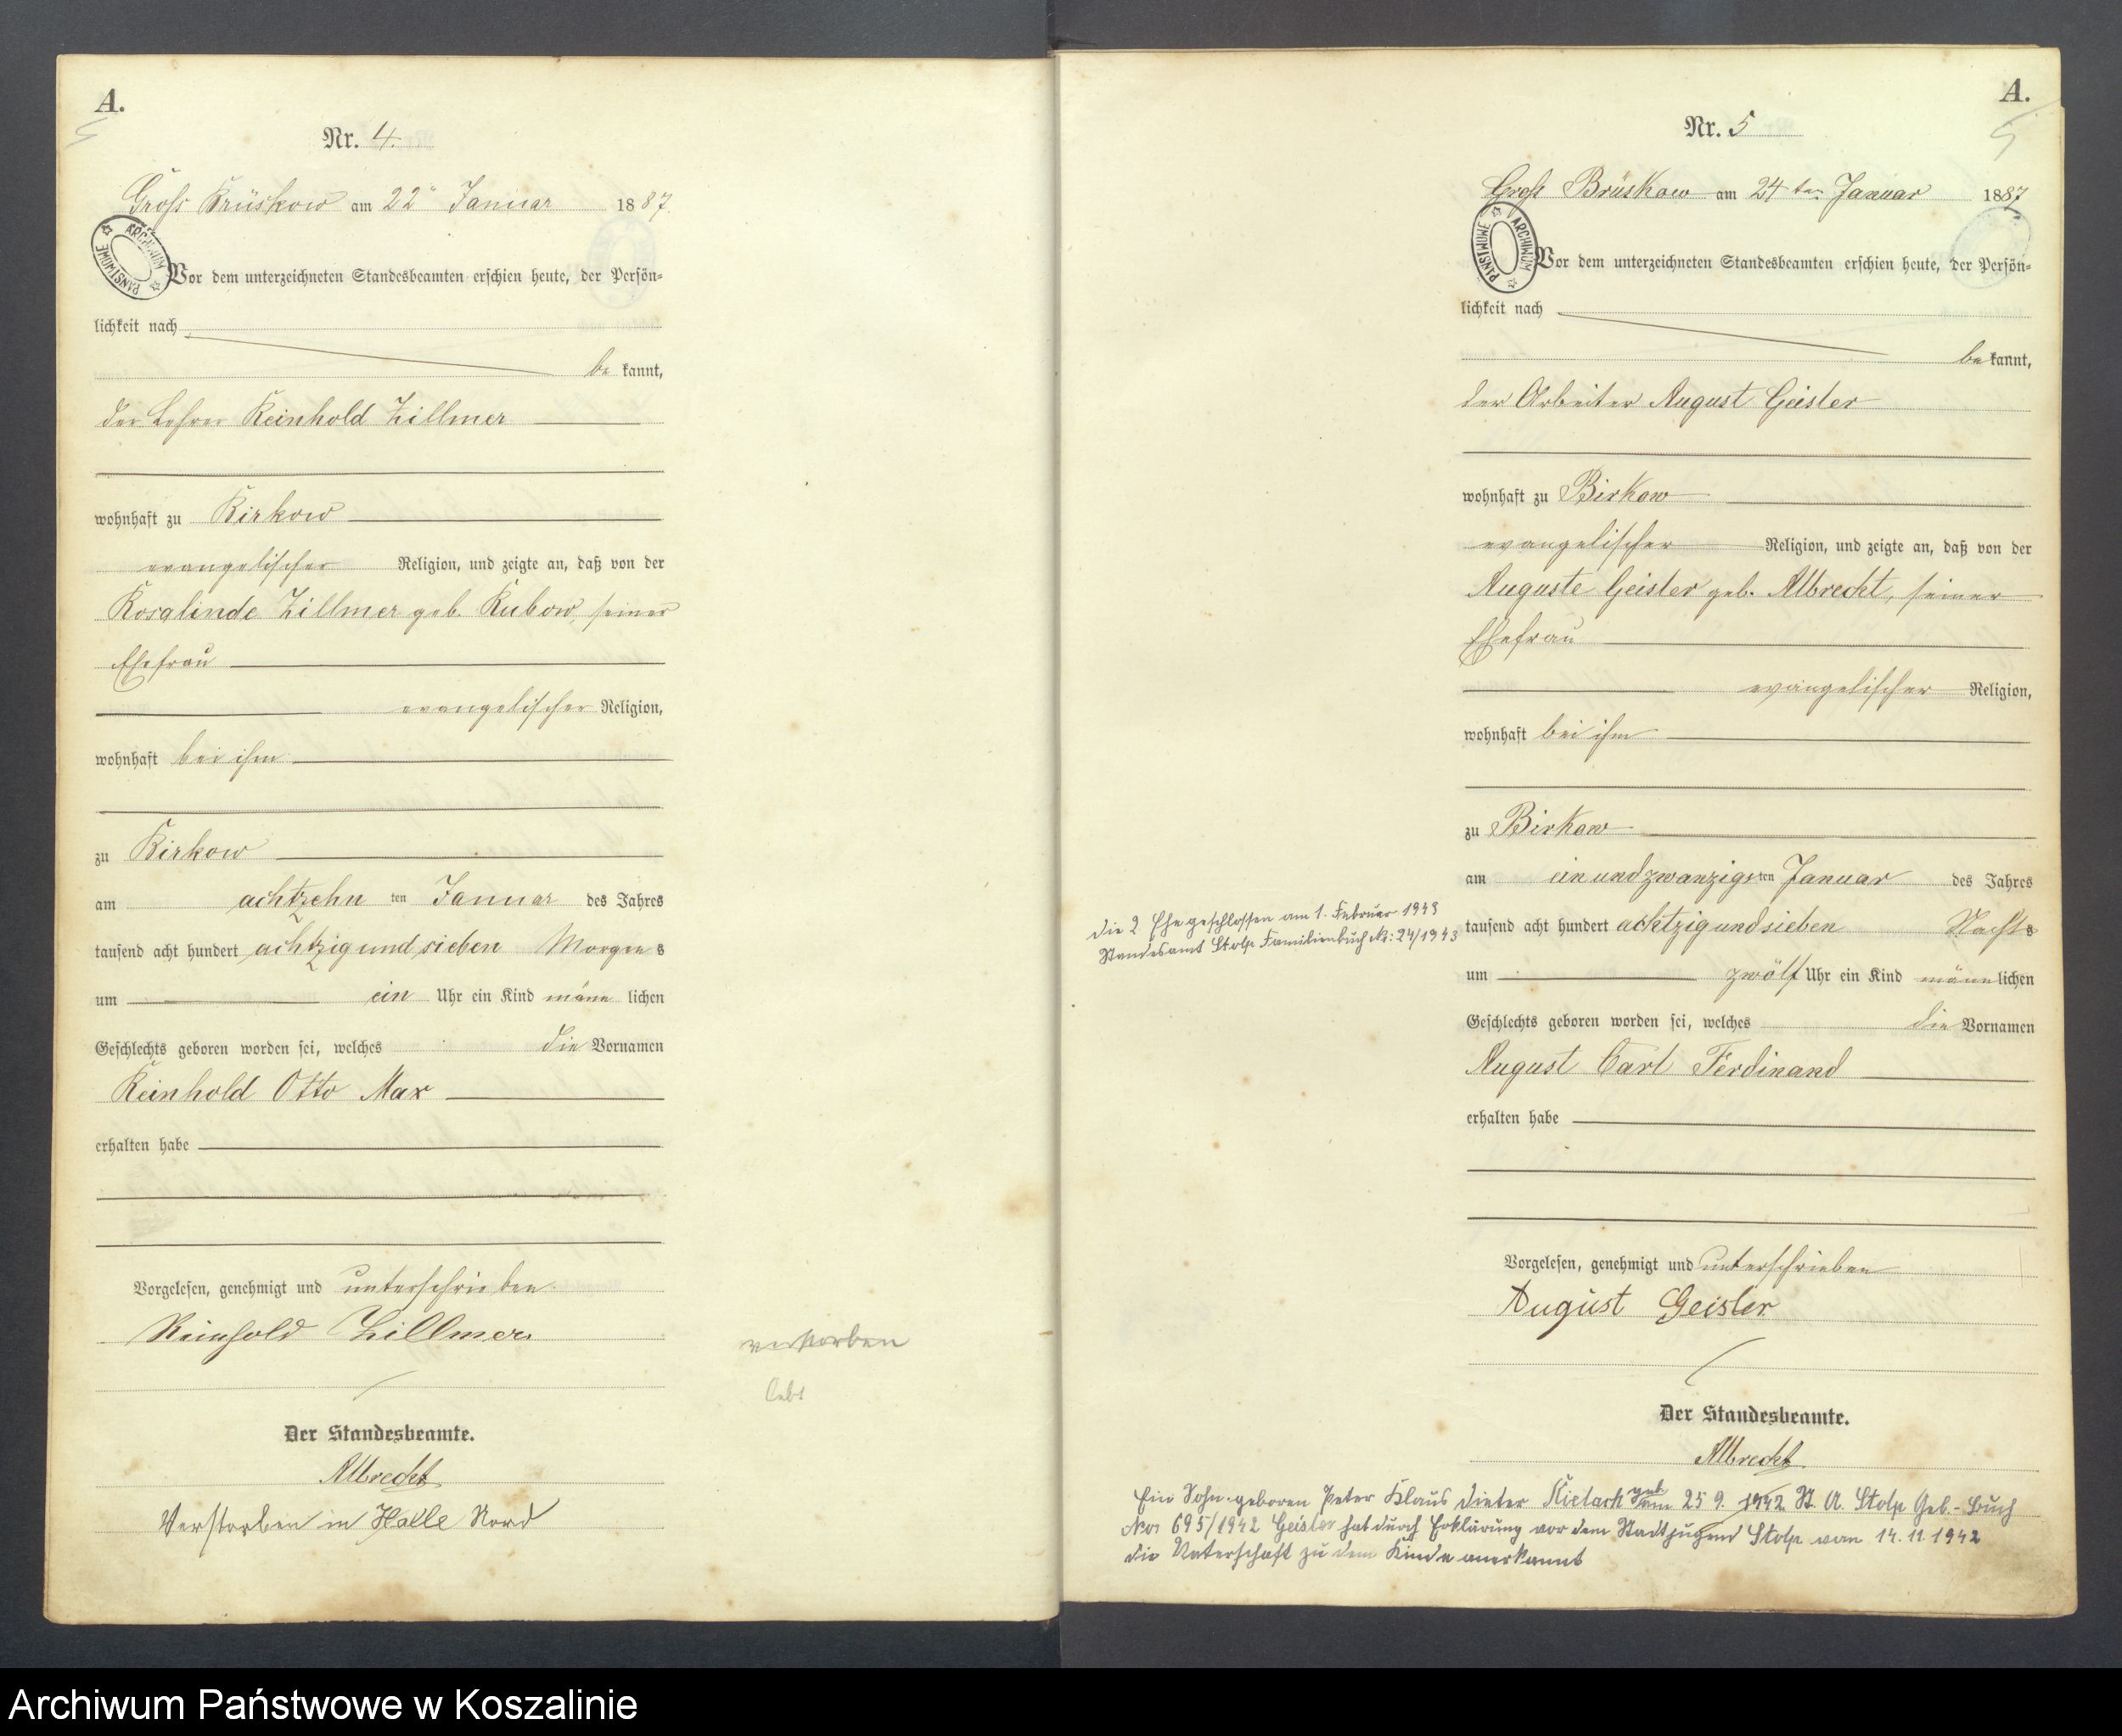 A.
Nr. 4.
Gross Brüskow am 22ⁿ Januar 1887.
PAŃSTWOWE ARCHIWUM
Vor dem unterzeichneten Standesbeamten erschien heute, der Persön-
lichkeit nach
be kannt,
der Lehrer Reinhold Zillmer
wohnhaft zu Birkow
evangelischer Religion, und zeigte an, daß von der
Rosalinde Zillmer geb. Rubow, seiner
Ehefrau
evangelischer Religion,
wohnhaft bei ihm
zu Birkow
am achtzehn ten Januar des Jahres
tausend acht hundert achtzig und sieben Morgens
um ein Uhr ein Kind männ lichen
Geschlechts geboren worden sei, welches die Vornamen
Reinhold Otto Max
erhalten habe
Vorgelesen, genehmigt und unterschrieben
Reinhold Zillmer
verstorben
lebt
Der Standesbeamte.
Albrecht
Verstorben in Halle Nord
A.
Nr. 5
Groß Brüskow am 24 ten Januar 1887
PAŃSTWOWE ARCHIWUM
Vor dem unterzeichneten Standesbeamten erschien heute, der Persön-
lichkeit nach
be kannt,
der Arbeiter August Geisler
wohnhaft zu Birkow
evangelischer Religion, und zeigte an, daß von der
Auguste Geisler geb. Albrecht, seiner
Ehefrau
evangelischer Religion,
wohnhaft bei ihm
zu Birkow
am einundzwanzigsten Januar des Jahres
tausend acht hundert achtzigundsieben Nachts
um zwölf Uhr ein Kind männlichen
Geschlechts geboren worden sei, welches die Vornamen
August Carl Ferdinand
erhalten habe
die 2 Ehe geschlossen am 1. Februar 1943
Standesamt Stolp Familienbuch Nr: 24/1943
Vorgelesen, genehmigt und unterschrieben
August Geisler
Der Standesbeamte.
Albrecht
Ein Sohn geboren Peter Klaus Dieter geb am 25 9. 1942 St. A. Stolp Geb.-Buch
Nor 695/1942 Geisler hat durch Erklärung vor dem Stadtjugend Stolp vom 14.11 1942
die Vaterschaft zu dem Kinde anerkannt
Archiwum Państwowe w Koszalinie